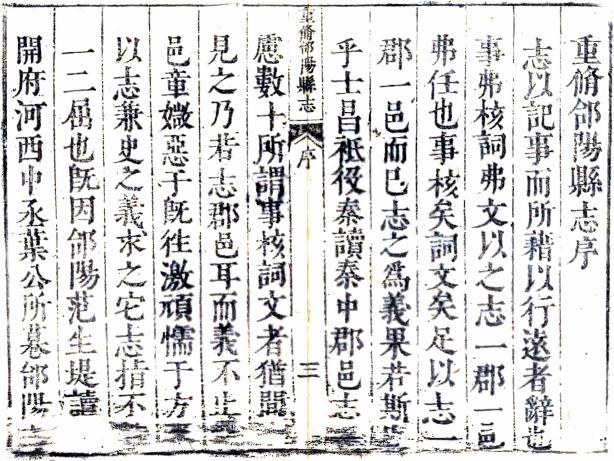 重脩郃陽縣志序
志以記事而所藉以行遠者辭也
事弗核詞弗文以之志一郡一邑
弗任也事核矣詞文矣足以志一
郡一邑而已志之為義果若斯
乎士昌祇役秦讀秦中郡邑志
重脩郃陽縣志
序
三
慮數十所謂事核詞文者猶間
見之乃若志郡邑耳而義不止
邑童媺惡于既徃激頑懦于方
以志兼史之義求之它志指不
一二屈也旣因郃陽范生堤讀
開府河西中丞葉公所纂郃陽